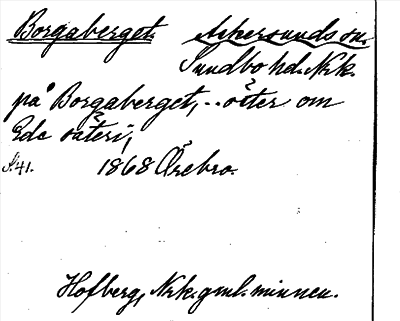 Borgaberget. Askersunds sn.
Sundbo hd. Nrk.
på Borgaberget, .. öster om
Ede säteri,
S. 41. 1868 Örebro.
Hofberg, Nrk. gml. minnen.